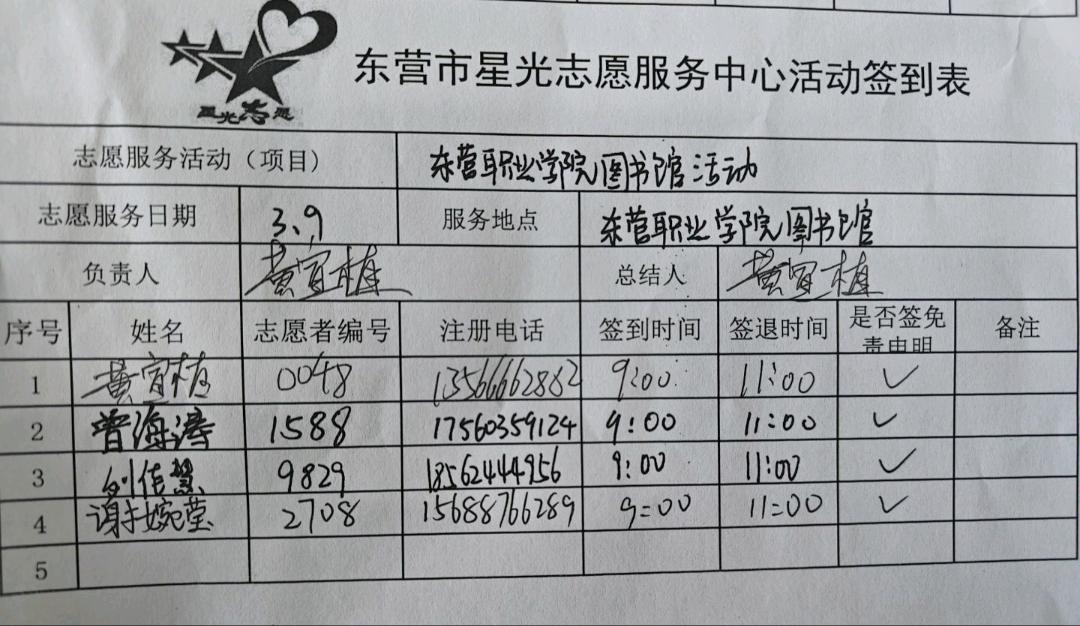 星光志愿
东营市星光志愿服务中心活动签到表
志愿服务活动（项目） 东营职业学院图书馆活动
志愿服务日期 3、9 服务地点 东营职业学院图书馆
负责人 黄宜植 总结人 黄宜植
序号 姓名 志愿者编号 注册电话 签到时间 签退时间 是否签免责申明 备注
1 黄宜植 0048 13566662882 9:00 11:00 ✓
2 曾海涛 1588 17560359124 9:00 11:00 ✓
3 刘佳慧 9829 18562444956 9:00 11:00 ✓
4 谢婉莹 2708 15688766289 9:00 11:00 ✓
5